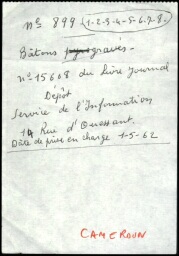 nº 899 (1-2-3-4-5-6-7-8.
Bâtons gravés.
nº 15608 du livre Journal
Dépôt
Service de l'Information
14 Rue d'Ouessant.
Date de prise en charge 1-5-62
CAMEROUN